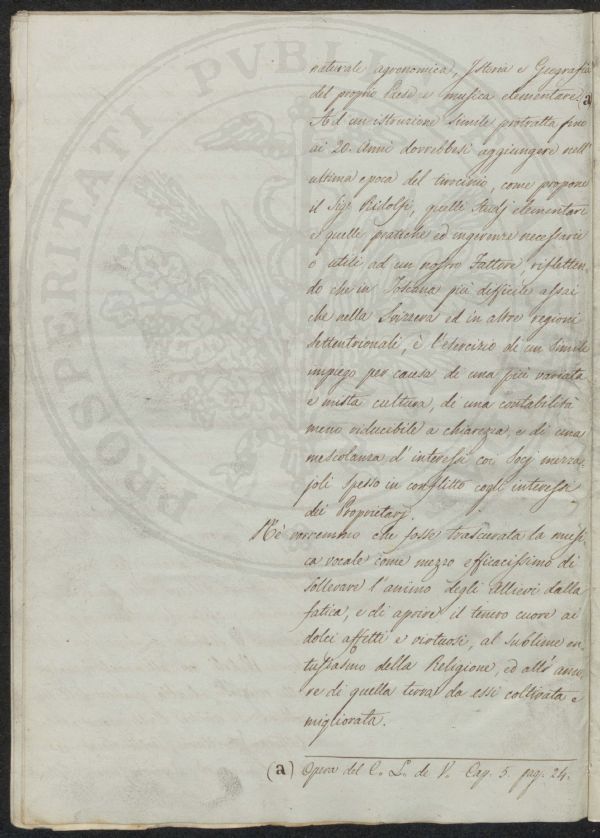 naturale agronomica, Istoria e Geografia
del proprio Paese e musica elementare (a
Ad un istruzione simile protratta fino
ai 20. Anni dovrebbesi aggiungere nell'
ultima epoca del tirocinio, come propone
il Sig.r Ridolfi, quelli studj elementari
e quelle pratiche ed ingerenze necessarie
o utili ad un nostro Fattore, rifletten-
do che in Toscana più difficile assai
che nella Svizzera ed in altre regioni
Settentrionali, è l'esercizio di un simile
impiego per causa di una più variata
e mista cultura, di una contabilità
meno riducibile a chiarezza, e di una
mescolanza d'interessi coi Socj mezza-
joli spesso in conflitto cogli interessi
dei Proprietarj.
Nè vorremmo che fosse trascurata la musi-
ca vocale come mezzo efficacissimo di
sollevare l'animo degli Allievi dalla
fatica, e di aprire il tenero cuore ai
dolci affetti e virtuosi, al sublime en-
tusiasmo della Religione, ed all' amo-
re di quella terra da essi coltivata e
migliorata.
(a) Opera del C. L. de V. Cap. 5. pag. 24.
PROSPERITATI PUBLI